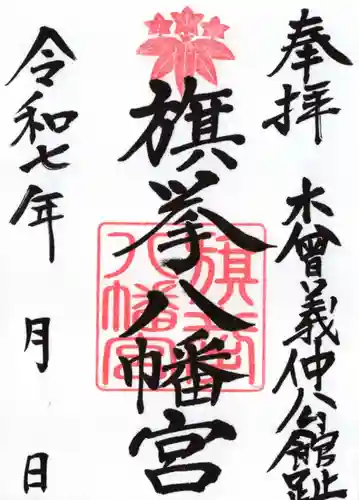 奉拝
木曽義仲公館趾
旗挙八幡宮
旗挙八幡宮
令和七年
月
日